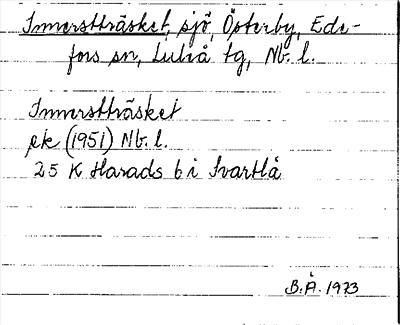 Innersträsket, sjö, Österby, Ede-
fors sn, Luleå tg, Nb. l.
Innersträsket
ek (1951) Nb. l.
25 K Harads 6 i Svartlå
B.Å. 1973